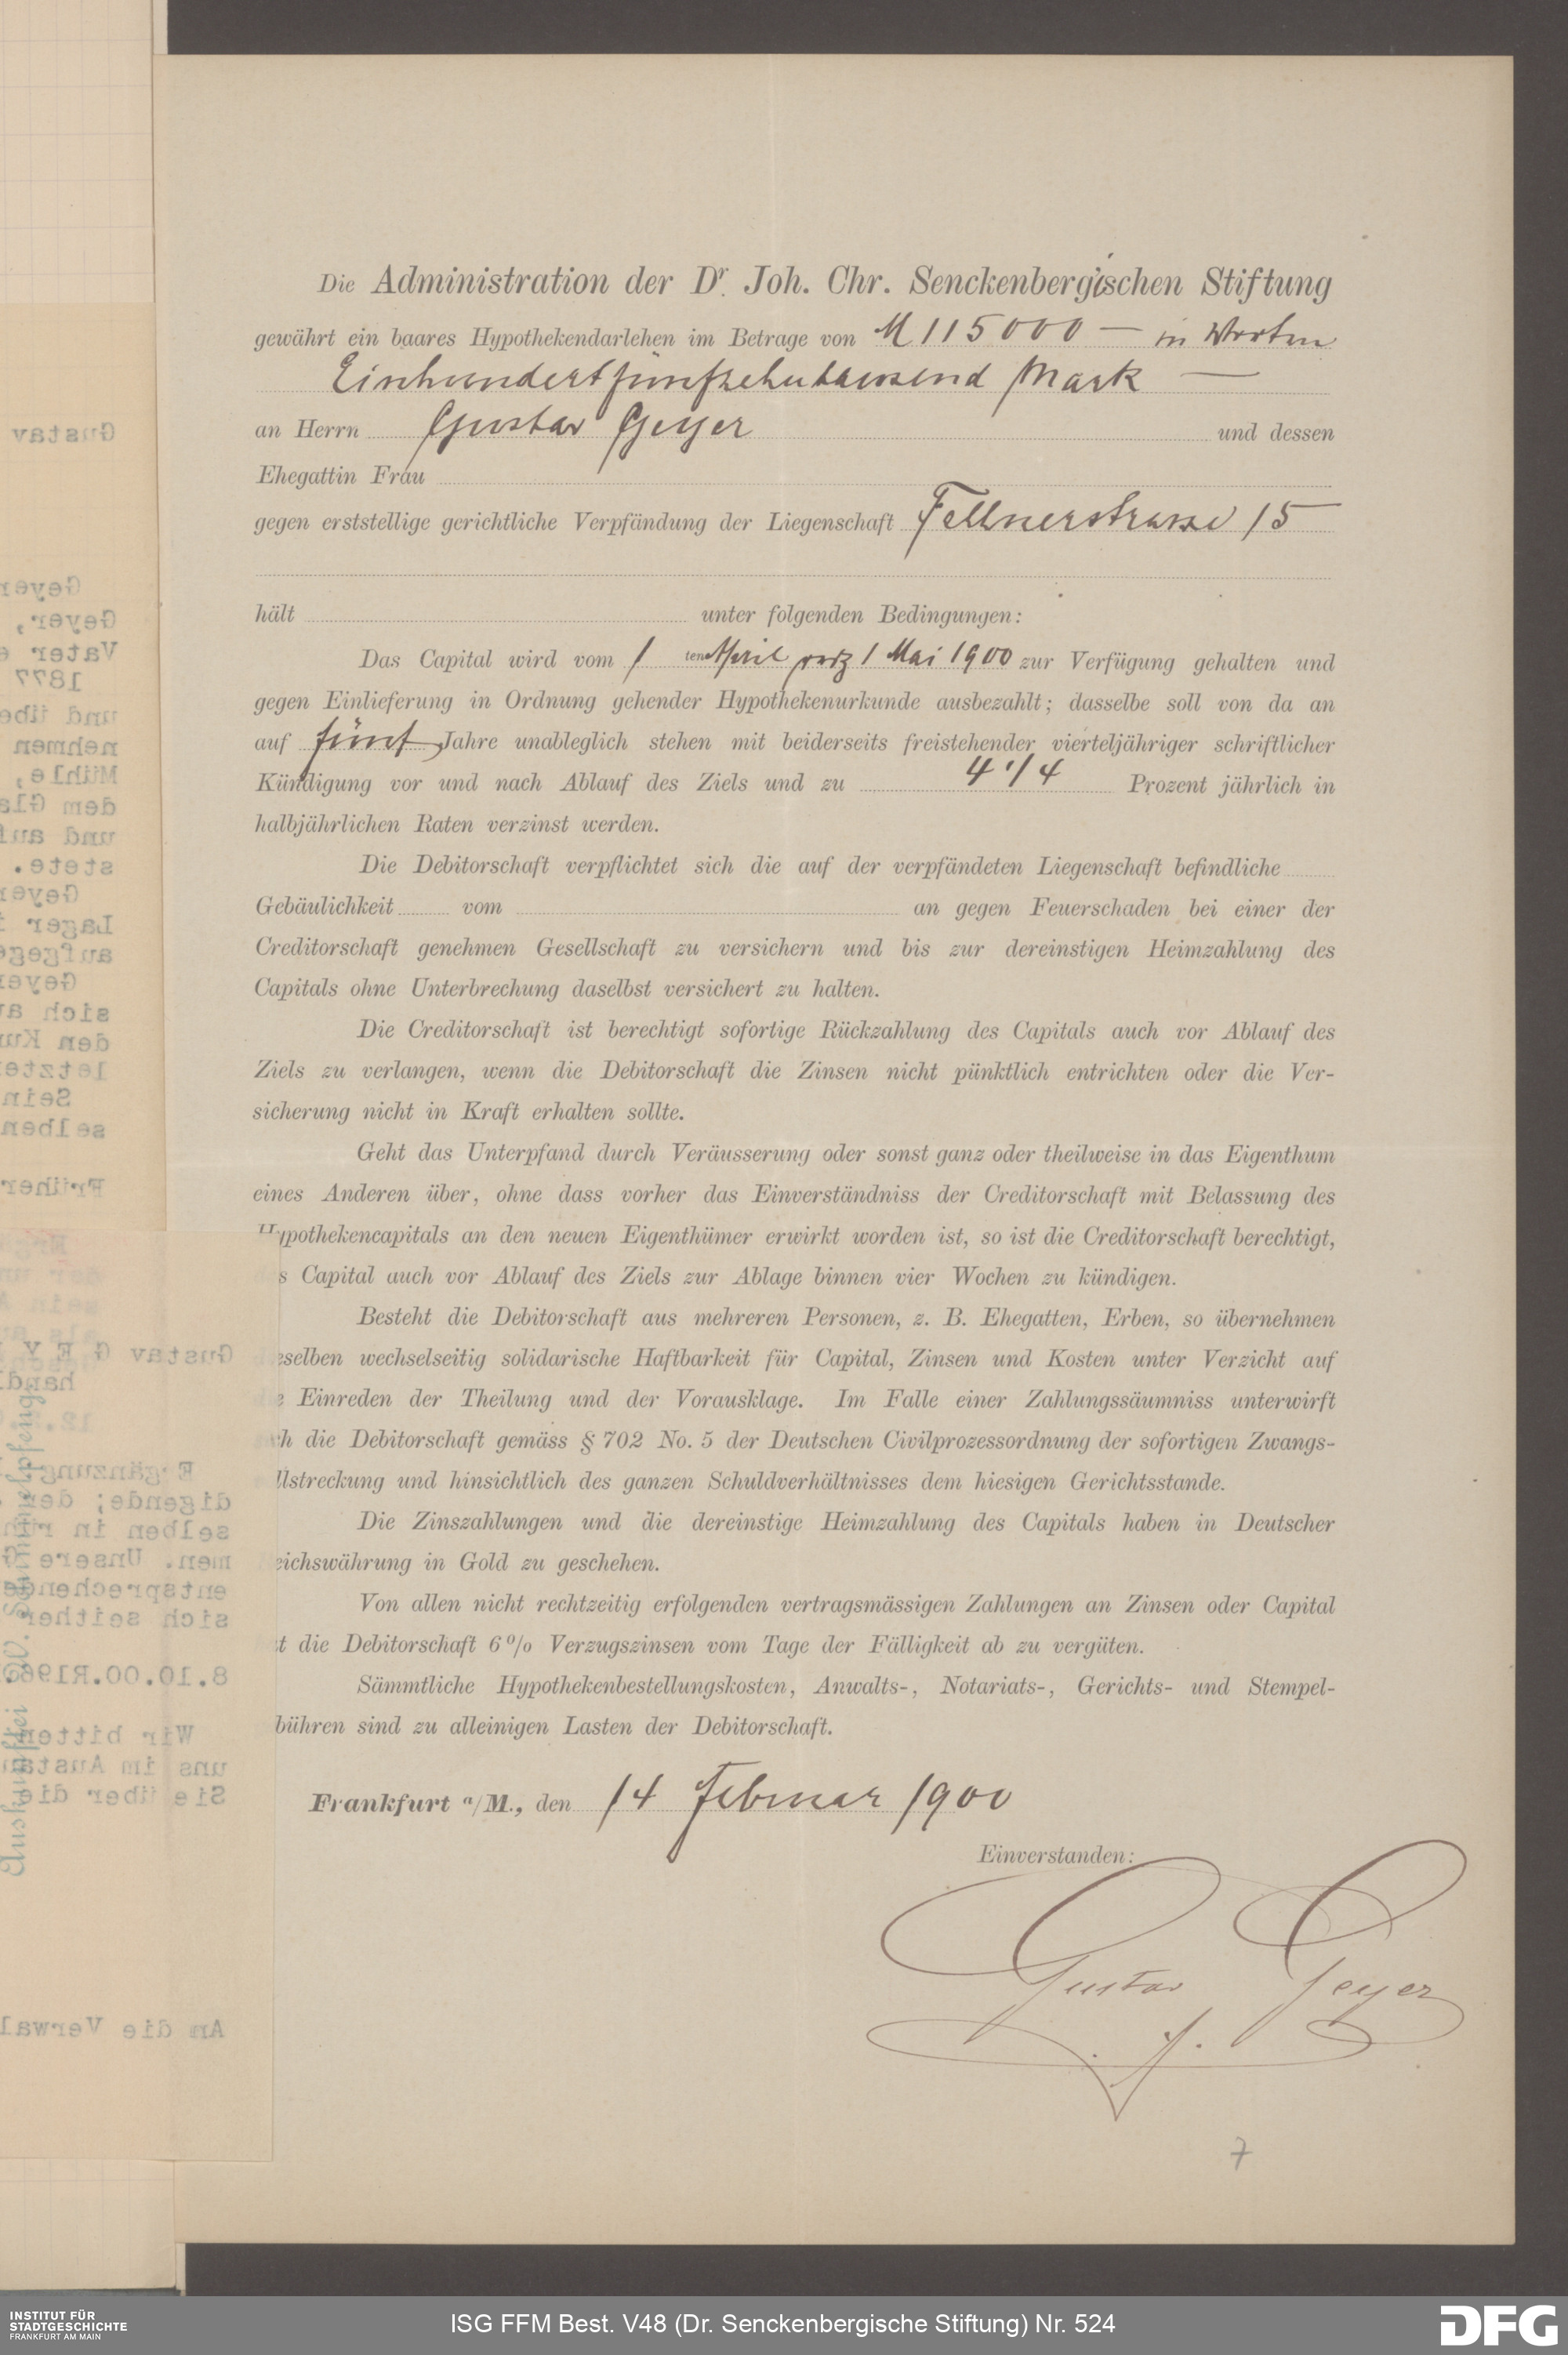 Die Administration der Dr. Joh. Chr. Senckenberg'ischen Stiftung
gewährt ein baares Hypothekendarlehen im Betrage von M 115000 — in Worten
Einhundertfünfzehntausend Mark —
an Herrn Gustav Geyer und dessen
Ehegattin Frau
gegen erststellige gerichtliche Verpfändung der Liegenschaft Fellnerstrasse 15
hält unter folgenden Bedingungen:
Das Capital wird vom 1 ten April 1 Mai 1900 zur Verfügung gehalten und
gegen Einlieferung in Ordnung gehender Hypothekenurkunde ausbezahlt; dasselbe soll von da an
auf fünf Jahre unableglich stehen mit beiderseits freistehender vierteljähriger schriftlicher
Kündigung vor und nach Ablauf des Ziels und zu 4 1/4 Prozent jährlich in
halbjährlichen Raten verzinst werden.
Die Debitorschaft verpflichtet sich die auf der verpfändeten Liegenschaft befindliche
Gebäulichkeit vom an gegen Feuerschaden bei einer der
Creditorschaft genehmen Gesellschaft zu versichern und bis zur dereinstigen Heimzahlung des
Capitals ohne Unterbrechung daselbst versichert zu halten.
Die Creditorschaft ist berechtigt sofortige Rückzahlung des Capitals auch vor Ablauf des
Ziels zu verlangen, wenn die Debitorschaft die Zinsen nicht pünktlich entrichten oder die Ver-
sicherung nicht in Kraft erhalten sollte.
Geht das Unterpfand durch Veräusserung oder sonst ganz oder theilweise in das Eigenthum
eines Anderen über, ohne dass vorher das Einverständniss der Creditorschaft mit Belassung des
Hypothekencapitals an den neuen Eigenthümer erwirkt worden ist, so ist die Creditorschaft berechtigt,
s Capital auch vor Ablauf des Ziels zur Ablage binnen vier Wochen zu kündigen.
Besteht die Debitorschaft aus mehreren Personen, z. B. Ehegatten, Erben, so übernehmen
eselben wechselseitig solidarische Haftbarkeit für Capital, Zinsen und Kosten unter Verzicht auf
e Einreden der Theilung und der Vorausklage. Im Falle einer Zahlungssäumniss unterwirft
h die Debitorschaft gemäss § 702 No. 5 der Deutschen Civilprozessordnung der sofortigen Zwangs-
llstreckung und hinsichtlich des ganzen Schuldverhältnisses dem hiesigen Gerichtsstande.
Die Zinszahlungen und die dereinstige Heimzahlung des Capitals haben in Deutscher
eichswährung in Gold zu geschehen.
Von allen nicht rechtzeitig erfolgenden vertragsmässigen Zahlungen an Zinsen oder Capital
t die Debitorschaft 6% Verzugszinsen vom Tage der Fälligkeit ab zu vergüten.
Sämmtliche Hypothekenbestellungskosten, Anwalts-, Notariats-, Gerichts- und Stempel-
bühren sind zu alleinigen Lasten der Debitorschaft.
Frankfurt a/M., den 14 Februar 1900
Einverstanden:
Gustav Geyer
7
INSTITUT FÜR
STADTGESCHICHTE
FRANKFURT AM MAIN
ISG FFM Best. V48 (Dr. Senckenbergische Stiftung) Nr. 524
DFG